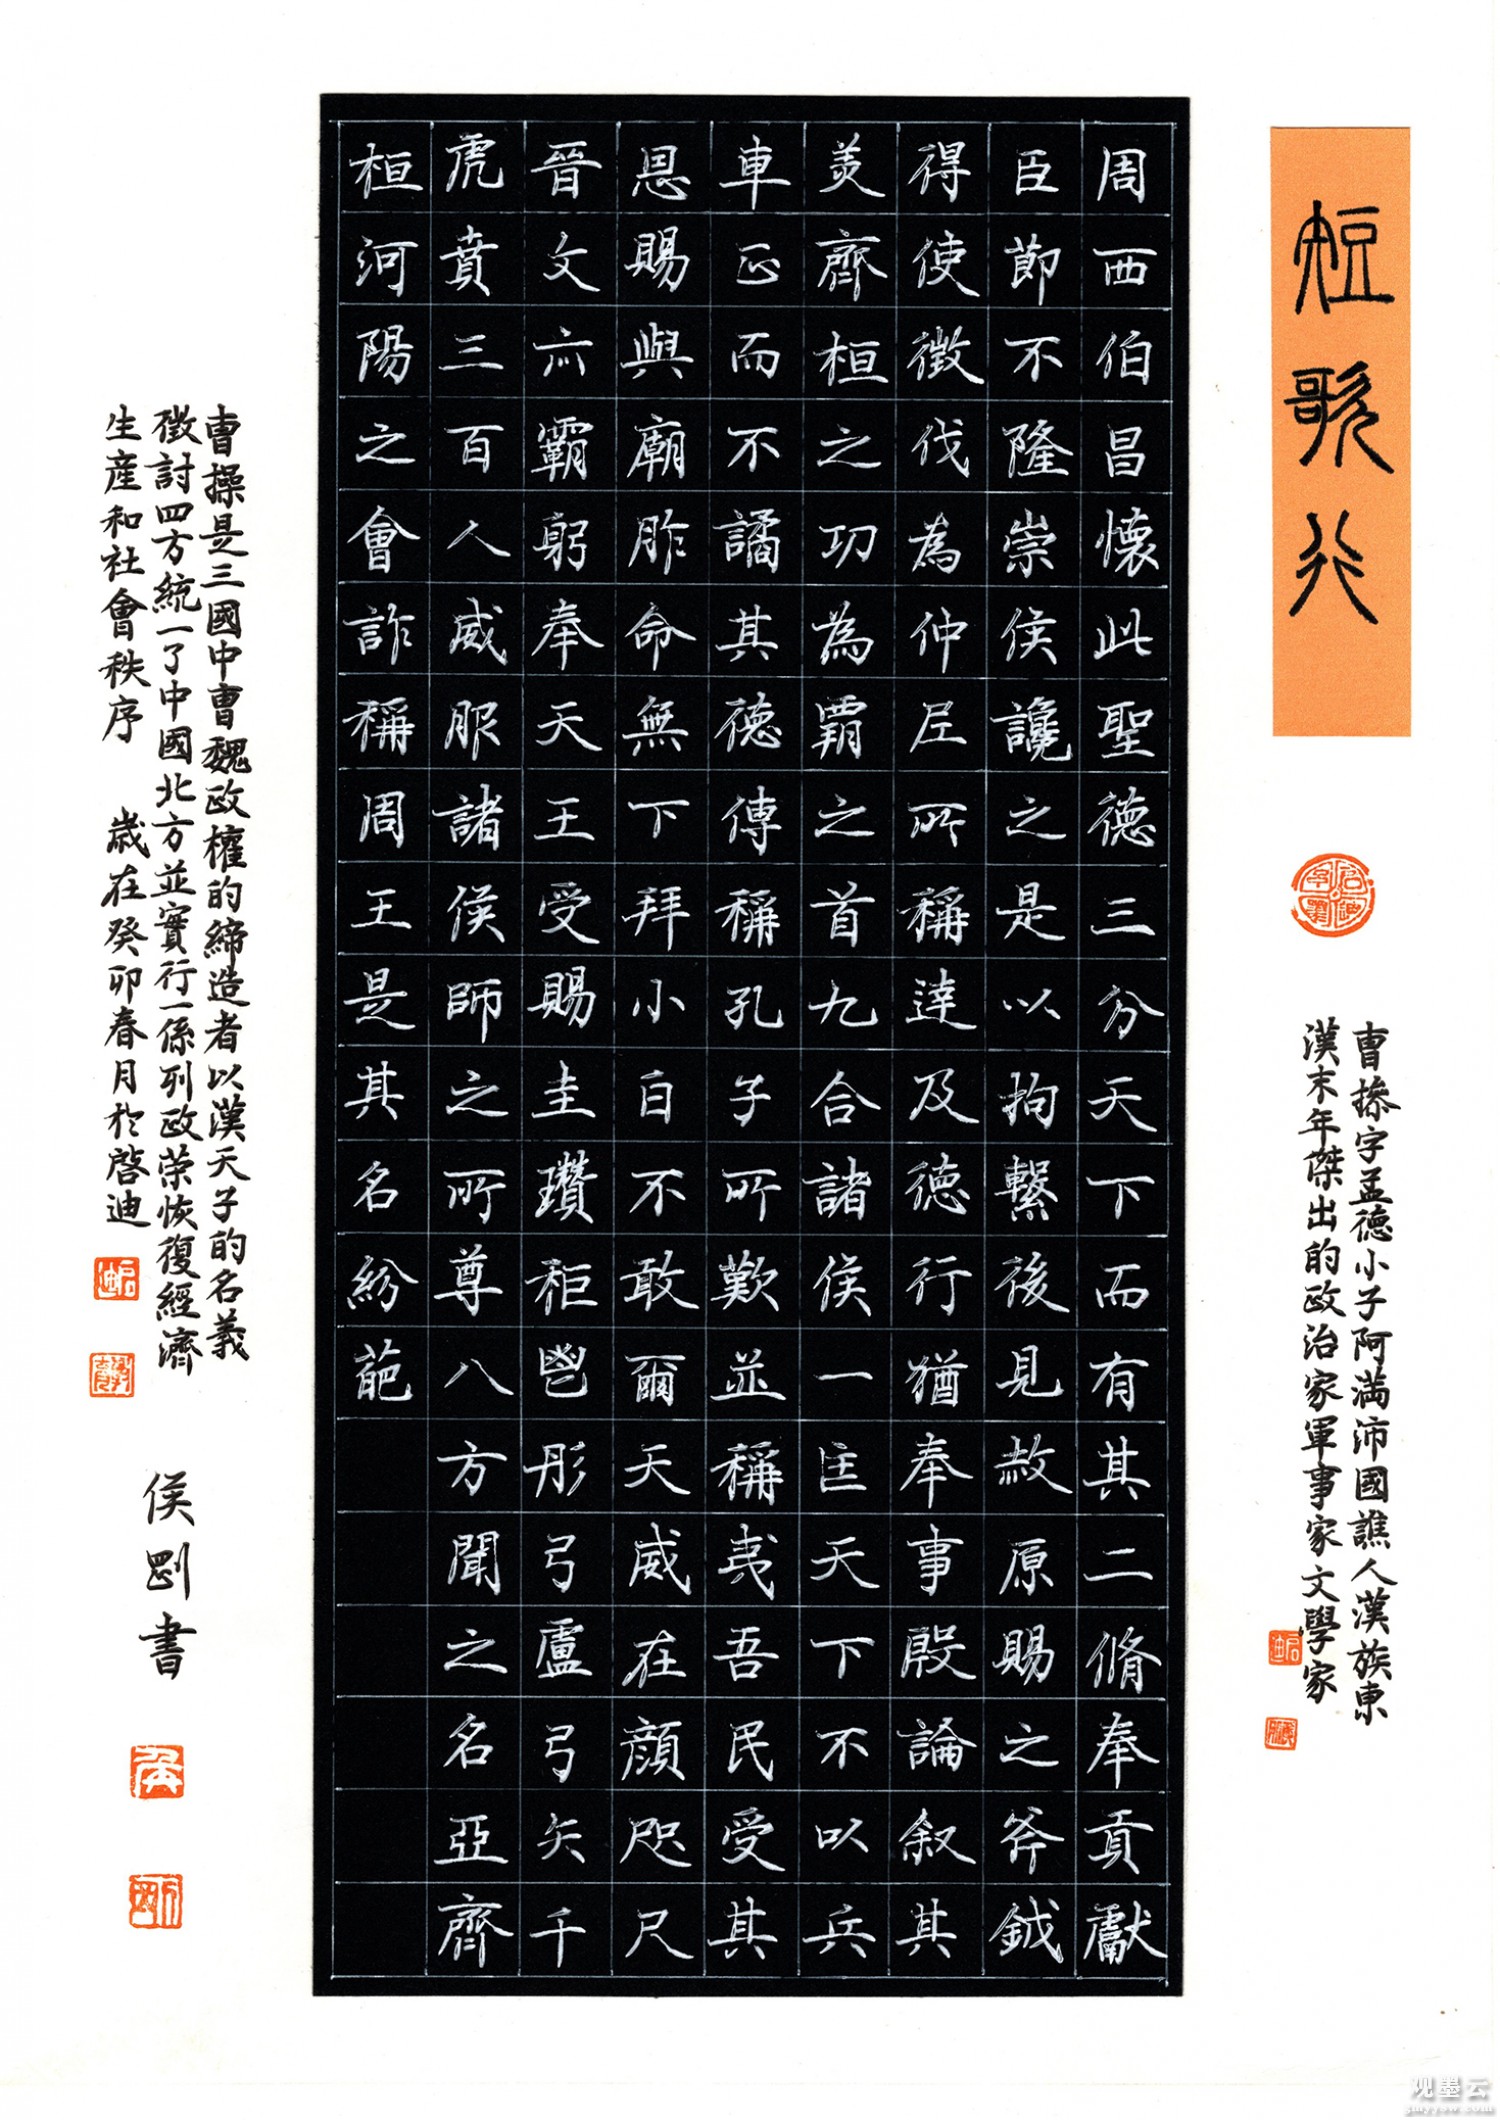 短歌行
曹操字孟德小子阿满沛國譙人漢族東
漢末年傑出的政治家軍事家文學家
周西伯昌懐此聖德三分天下而有其二脩奉貢獻
臣節不隆崇侯讒之是以拘繫後見赦原賜之斧鉞
得使徵伐為仲尼所稱達及德行猶奉事殷論叙其
美齊桓之功為霸之首九合諸侯一匡天下不以兵
車正而不譎其德傳稱孔子所歎並稱夷吾民受其
恩賜與廟胙命無下拜小白不敢爾天威在顔咫尺
晉文亦霸躬奉天王受賜圭瓚秬鬯彤弓盧弓矢千
虎賁三百人威服諸侯師之所尊八方聞之名亞齊
桓河陽之會詐稱周王是其名紛葩
曹操是三國中曹魏政權的締造者以漢天子的名義
徵討四方統一了中國北方並實行一係列政荣恢復經濟
生産和社會秩序 歲在癸卯春月於啓迪
侯剛書
观墨云
gmyyow.com